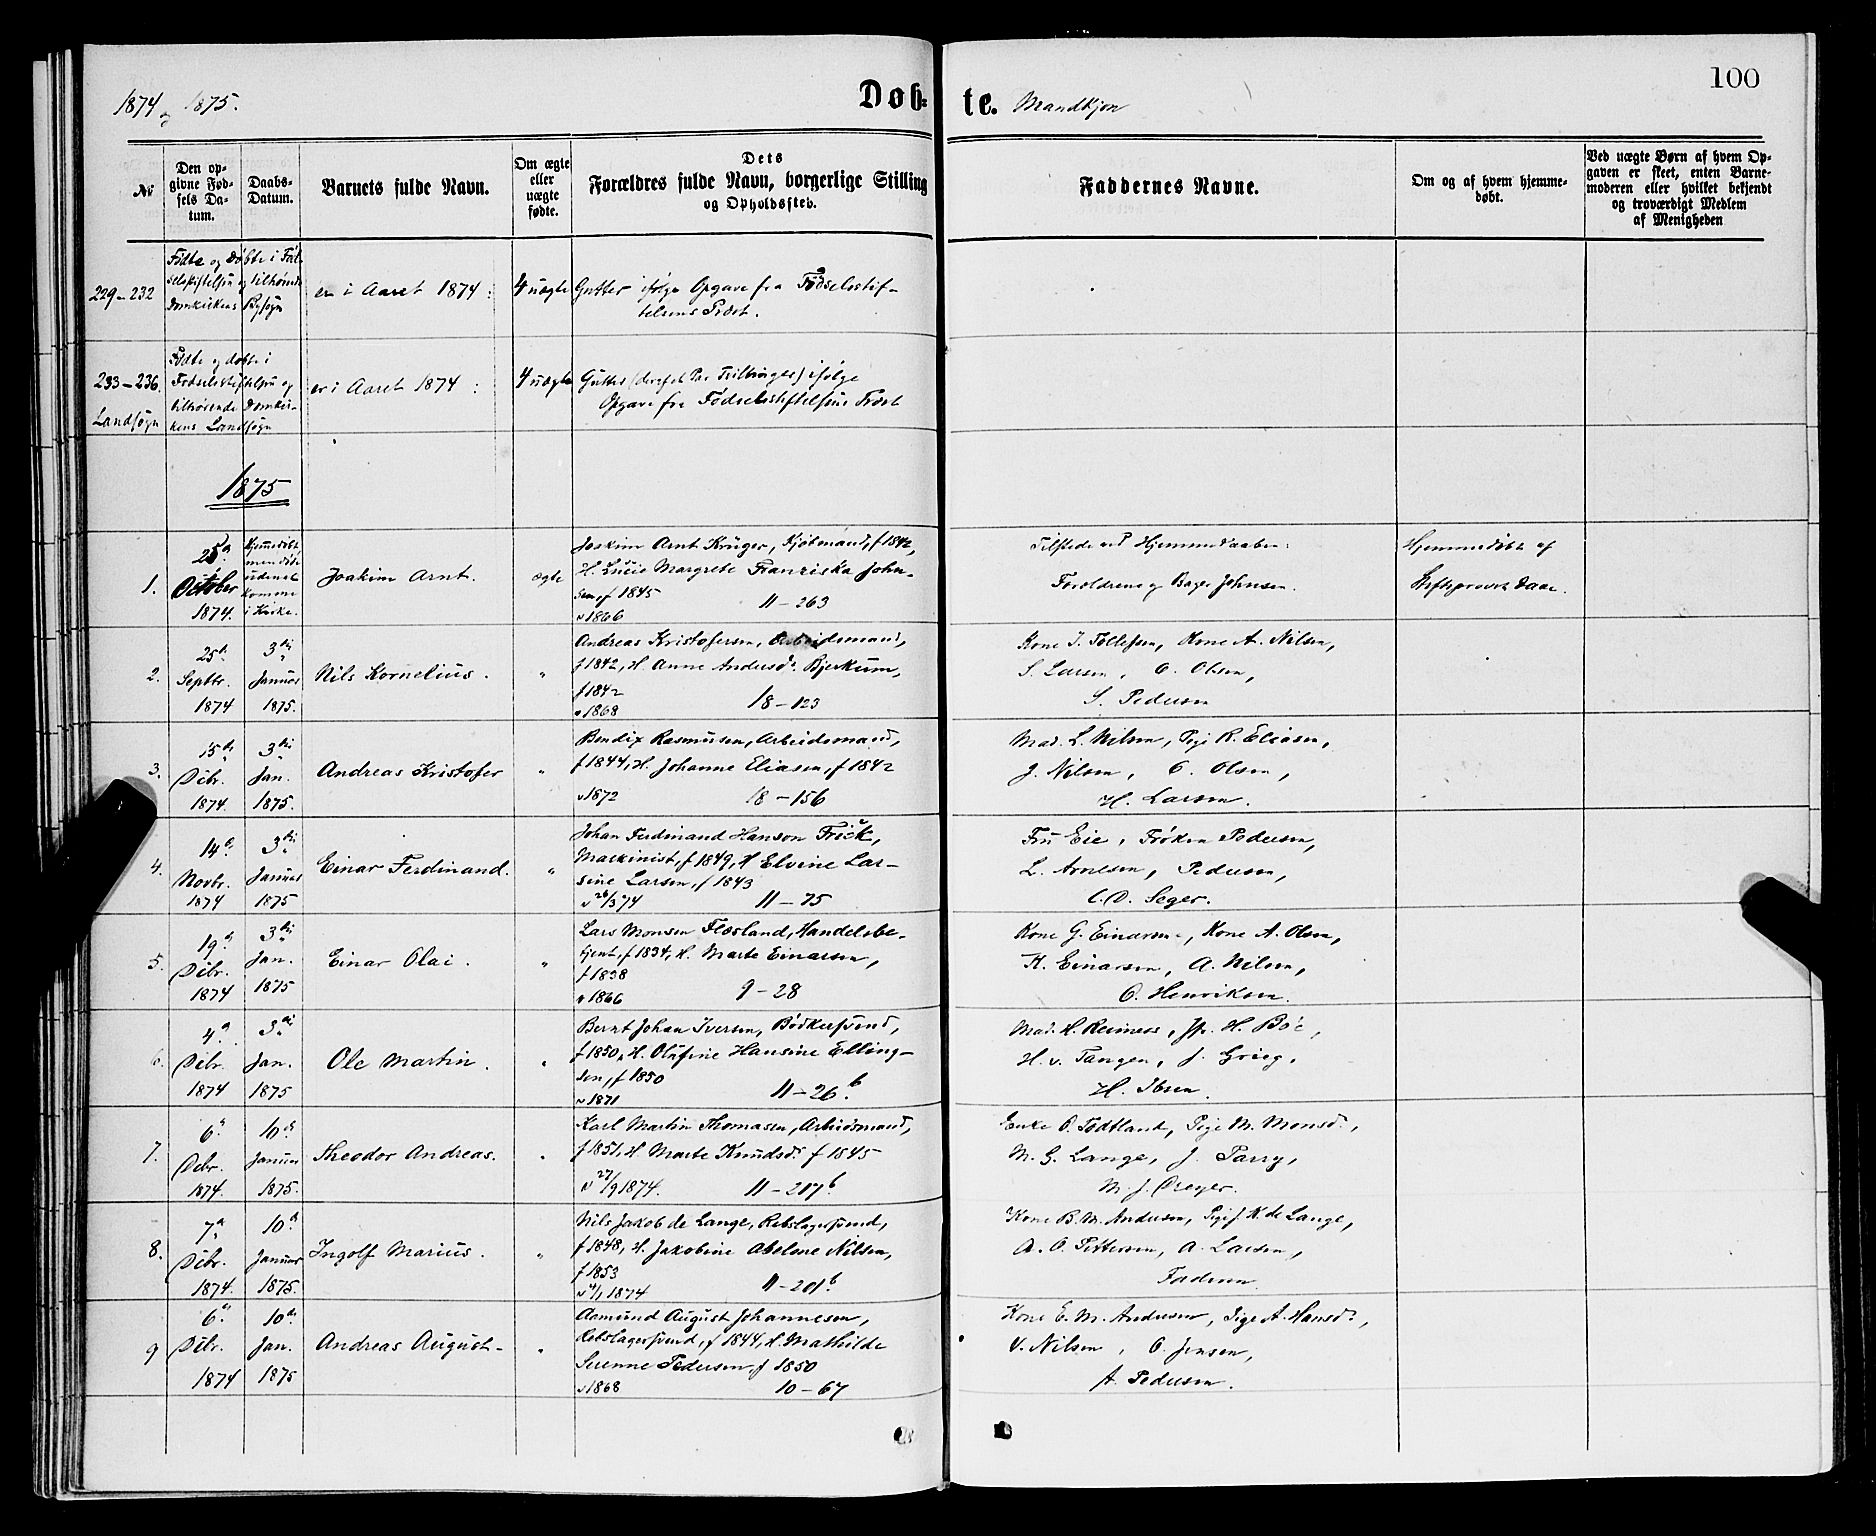 1874 og 1875.
Døb-
te. Mandkjøn
100
№
Den op-
givne Fød-
sels Da-
tum.
Daabs-
Datum.
Barnets fulde Navn.
Om ægte
eller
uægte
fødte.
Dets
Forældres fulde Navn, borgerlige Stilling
og Opholdssted.
Faddernes Navne.
Om og af hvem hjemme-
døbt.
Ved uægte Børn af hvem Op-
gaven er skeet, enten Barne-
moderen eller hvilket bekjendt
og troværdigt Medlem
af Menigheden
229-232
Fødte og døbte i Fød-
selsstiftelsen og tilhørende
Domkirkens Bysogn
er i Aaret 1874:
4 uægte
Gutter ifølge Opgave fra Fødselsstif-
telsens Præst.
233-236
Landsogn
Fødte og døbte i
Fødselsstiftelsen og
tilhørende Domkir-
kens Landsogn
er i Aaret 1874:
4 uægte
Gutter (deraf et Par Tvillinger) ifølge
Opgave fra Fødselsstiftelsens Præst
1875
1.
25de
October
1874.
Hjemmedøbt
men døde
uden at
komme
i Kirke.
Joakim Arnt.
ægte
Joakim Arnt Krüger, Kjøbmand, f 1842,
H. Lucie Margrete Franziska John-
sen, f 1845
v 1866
11-263
Tilstede ved Hjemmedaaben:
Forældrene og Bager Johnsen.
Hjemmedøbt af
Stiftsprovst Daae.
2.
25de
Septbr.
1874
3die
Januar
1875.
Nils Kornelius.
"
Andreas Kristofersen, Arbeidsmand,
f 1842, H. Anne Andersdr Bjerkum,
f 1842
v 1868
18-123
Kone I. Tollefsen, Kone A. Nilsen,
S. Larsen, O. Olsen,
S. Pedersen
3.
15de
Dcbr.
1874.
3die
Jan.
1875.
Andreas Kristofer
"
Bendix Rasmussen, Arbeidsmand,
f 1844, H. Johanne Eliasen, f 1842
v 1872
18-156
Mad. L. Nilsen, Pige R. Eliasen,
J. Nilsen, O. Olsen,
H. Larsen.
4.
14de
Novbr.
1874
3die
Januar
1875
Einar Ferdinand.
"
Johan Ferdinand Hanson Frick,
Maskinist, f 1849, H Elvine Lar-
sine Larsen, f 1843
v 26/3 74
11-75
Fru Eie, Frøken Pedersen,
L. Arnesen, Pedersen,
C. D. Seger.
5.
19de
Dcbr.
1874
3die
Jan.
1875
Einar Olai.
"
Lars Monsen Flesland, Handelsbe-
tjent, f 1834, H. Marte Einarsen,
f 1838
v 1866
9-28
Kone G. Einarsen, Kone A. Olsen,
K. Einarsen, A. Nilsen,
O. Henriksen.
6.
4de
Dcbr.
1874
3die
Jan.
1875
Ole Martin.
"
Bernt Johan Iversen, Bødkersvend,
f 1850, H. Olufine Hansine Elling-
sen, f 1850
v 1871
11-26 b.
Mad. H. Reimers, H. Böe,
H. v. Tangen, J. Grieg,
H. Ibsen.
7.
6te
Dcbr.
1874.
10de
Januar
1875.
Theodor Andreas.
"
Karl Martin Thomasen, Arbeidsmand,
f 1851, H Marte Knudsdr f 1845
v 27/9 1874.
11-217 b.
Enke O. Tødtland, Pige M. Monsdr,
M. G. Lange, J. Parry,
M. J. Dreyer.
8.
7de
Dcbr.
1874.
10de
Januar
1875.
Ingolf Marius.
"
Nils Jakob de Lange, Rebslagersvend,
f 1848, H. Jakobine Abelone Nilsen,
f 1853
v 4/1 1874
11-201 b.
Kone B. M. Andersen, Pige J. K. de Lange,
A. O. Pettersen, A. Larsen,
Faderen
9
6te
Dcbr.
1874
10de
Jan.
1875
Andreas August
"
Aamund August Johannesen,
Rebslagersvend, f 1844, H. Mathilde
Serenne Pedersen, f 1850
v 1868
10-67
Kone E. M. Andersen, Pige A. Hansdr,
V. Nilsen, O. Jensen,
A. Pedersen.